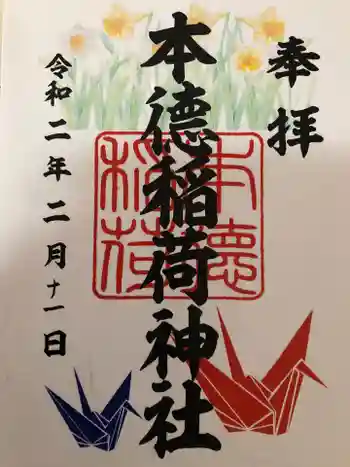 奉拝
本徳稲荷神社
本徳
稲荷
令和二年二月十一日